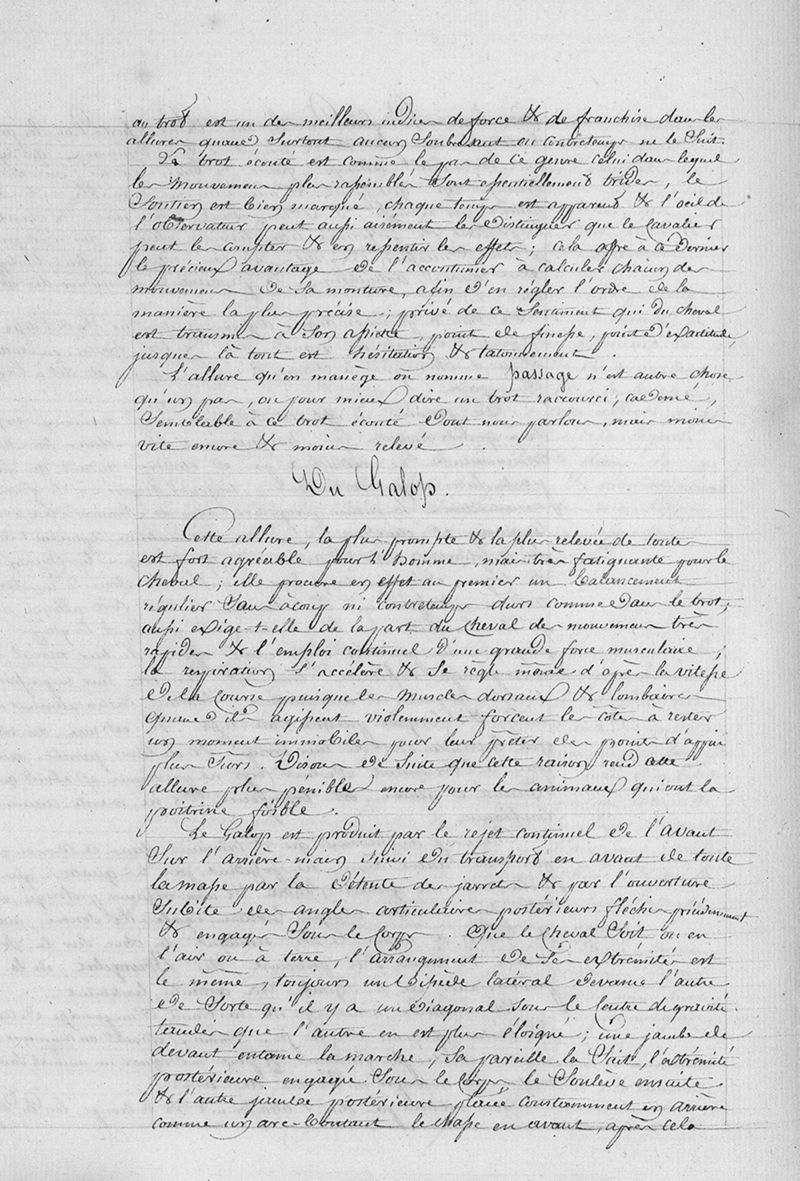 au trot est un des meilleurs indices de force & de franchise dans les
allures quand surtout aucun soubresaut ou contretemps ne le suit.
Le trot écouté est comme le pas de ce genre celui dans lequel
les mouvemens plus rassemblés sont essentiellement trides, le
soutien est bien marqué, chaque temps est apparent & l'oeil de
l'observateur peut aussi aisément les distinguer que le cavalier
peut les compter & en ressentir les effets ; cela offre à ce dernier
le précieux avantage de l'accoutumer à calculer chacun des
mouvemens de sa monture, afin d'en régler l'ordre de la
manière la plus précise ; privé de ce sentiment qui du cheval
est transmis à son assiette, point de finesse, point d'exactitude,
jusques là tout est hésitation & tatonnement.
L'allure qu'en manège on nomme passage n'est autre chose
qu'un pas, ou pour mieux dire un trot raccourci, cadencé,
semblable à ce trot écouté dont nous parlons, mais moins
vite encore & moins relevé.
Du Galop.
Cette allure, la plus prompte & la plus relevée de toutes
est fort agréable pour l'homme, mais très fatiguante pour le
cheval ; elle procure en effet au premier un balancement
régulier sans àcoup ni contretemps durs comme dans le trot,
aussi exige-t-elle de la part du cheval des mouvemens très
rapides & l'emploi continuel d'une grande force musculaire ;
la respiration s'accélère & se règle même d'après la vitesse
de la course puisque les muscles dorsaux & lombaires
quand ils agissent violemment forcent les côtes à rester
un moment immobiles pour leur prêter des points d'appui
plus surs. Disons de suite que cette raison rend cette
allure plus pénible encore pour les animaux qui ont la
poitrine foible.
Le Galop est produit par le rejet continuel de l'avant
sur l'arrière-main suivi du transport en avant de toute
la masse par la détente des jarrets & par l'ouverture
subite des angles articulaires postérieurs fléchis précédemment
& engagés sous le corps. Que le cheval soit ou en
l'air ou à terre, l'arrangement de ses extrémités est
le même, toujours un bipède latéral devance l'autre
de sorte qu'il y a un diagonal sous le centre de gravité
tandis que l'autre en est plus éloigné ; une jambe de
devant entame la marche, sa pareille la suit, l'extrémité
postérieure engagée sous le corps le soulève ensuite
& l'autre jambe postérieure placée constamment en arrière
comme un arc-boutant le chasse en avant, après cela